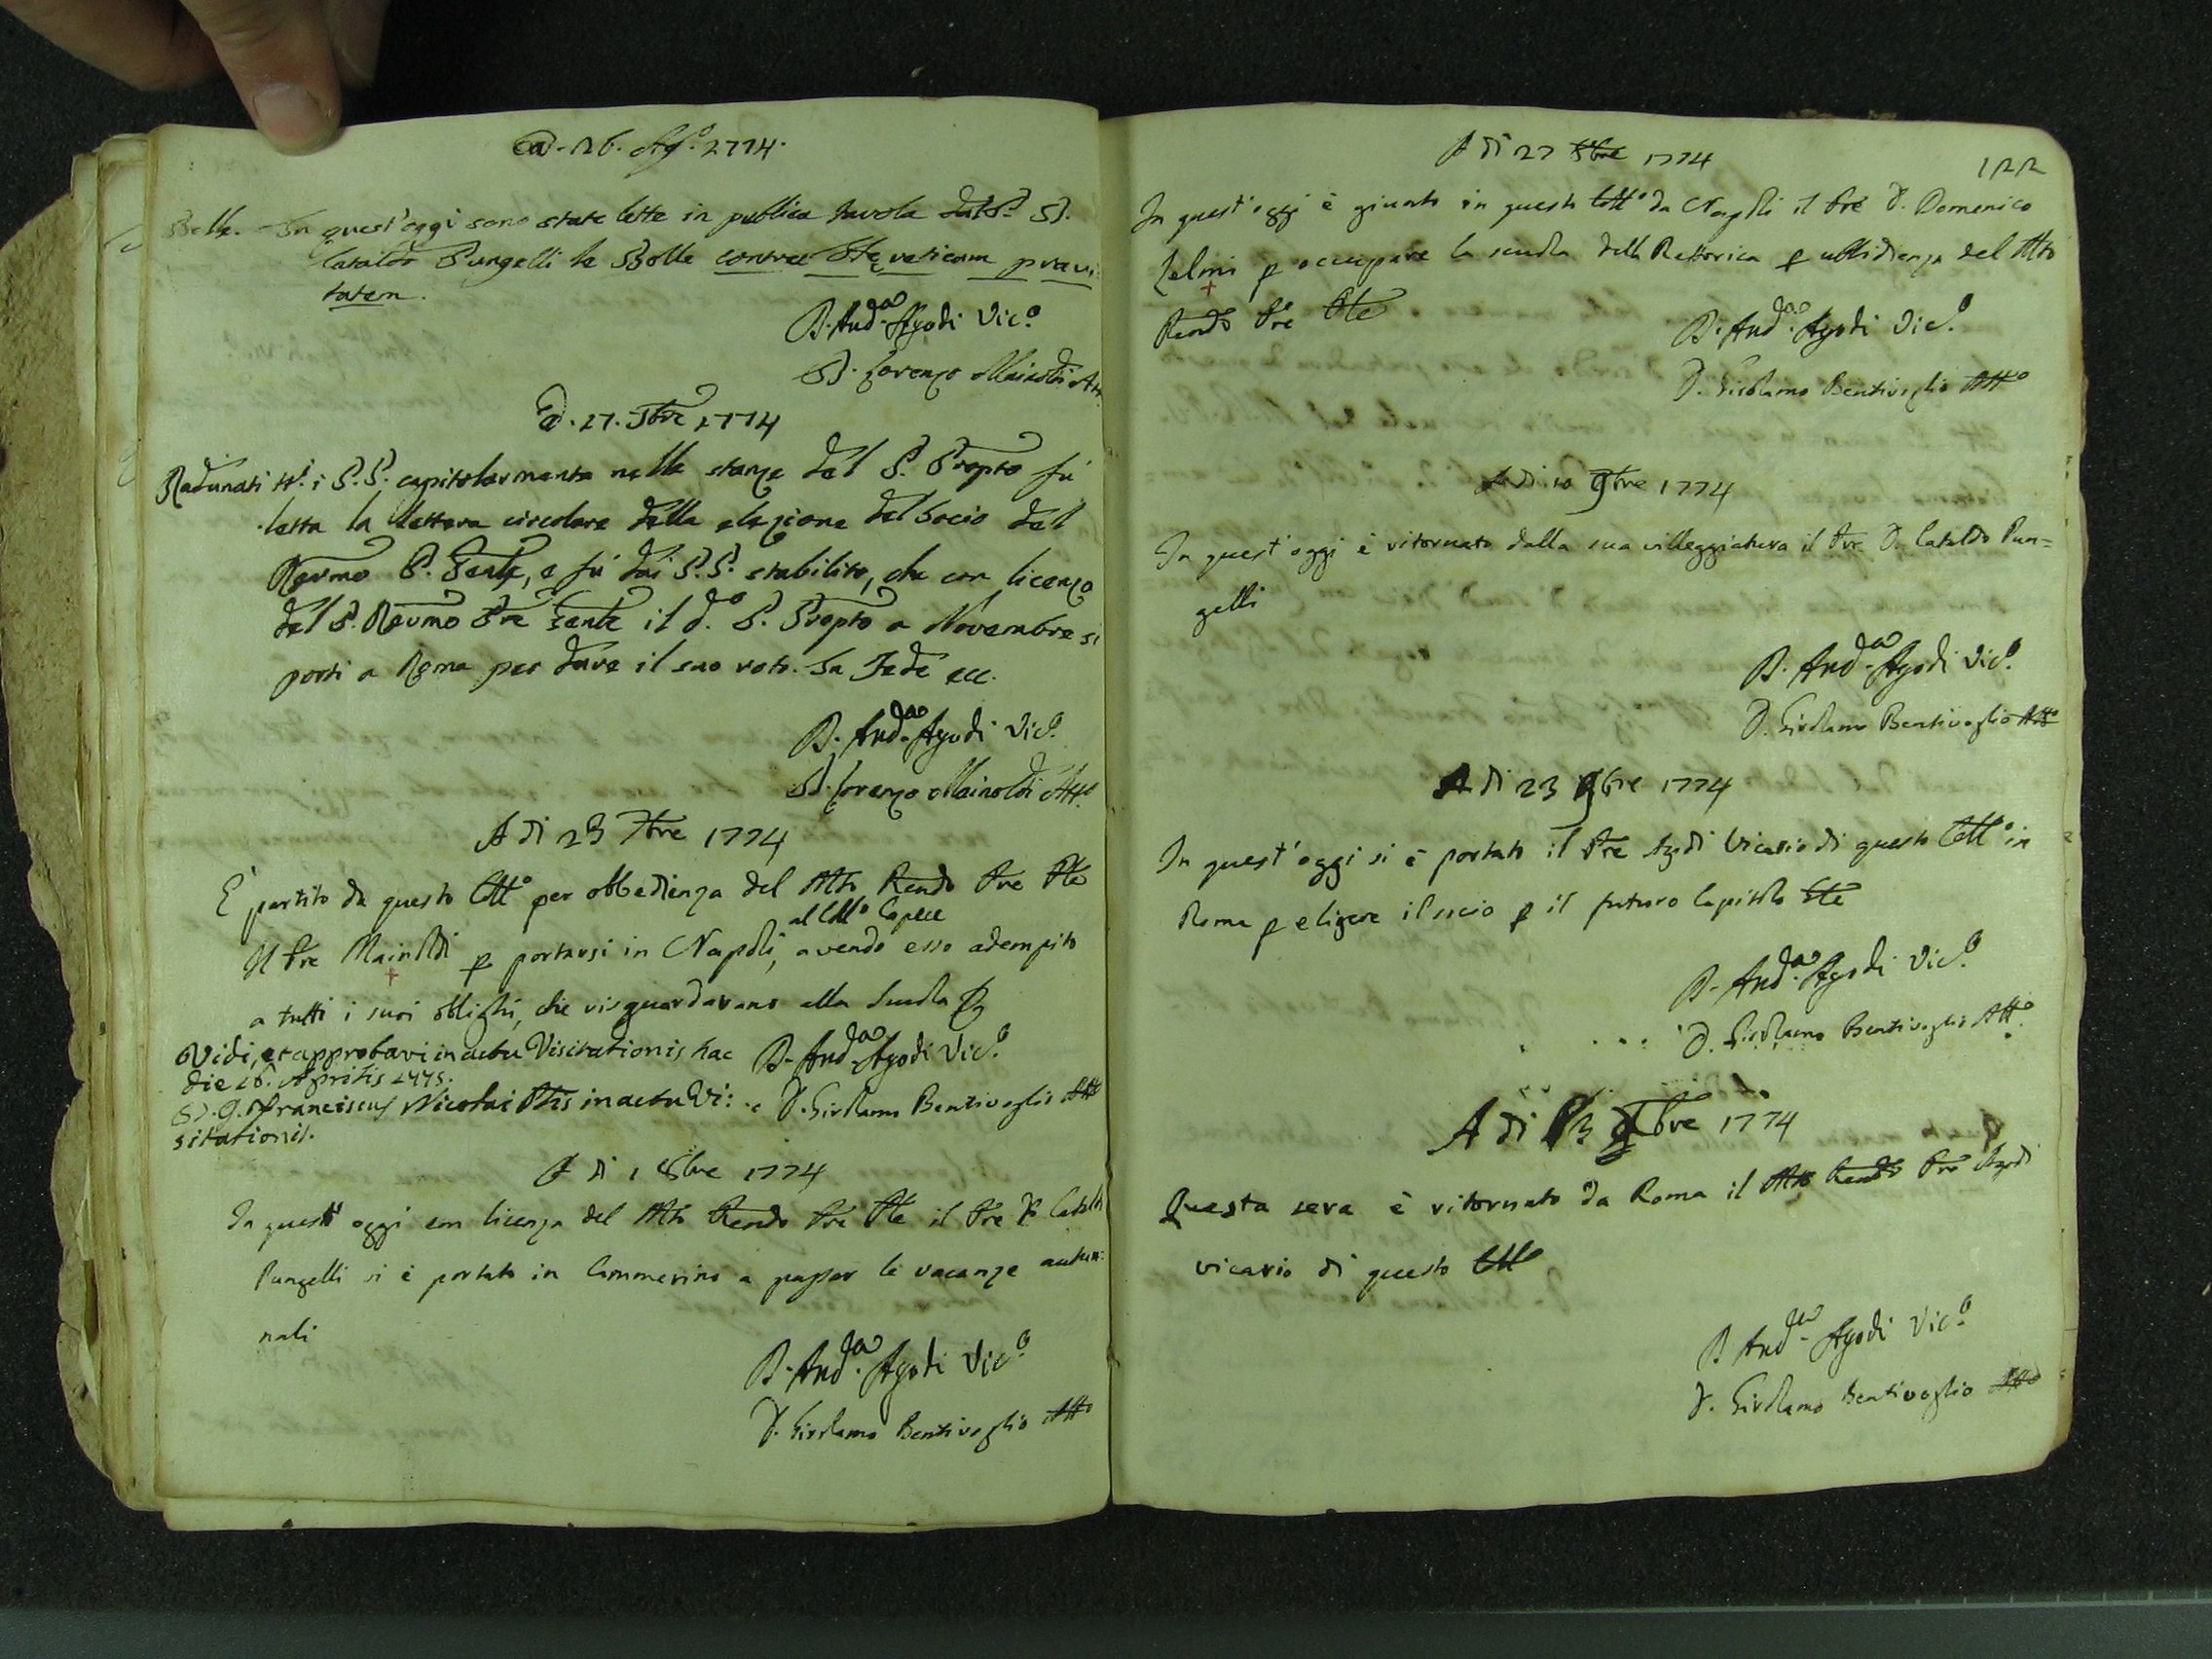 A. 26. Ag.º 1774.
Bolle. In quest'oggi sono state lette in publica tavola dal P. D.
Cataldo Pungelli le Bolle contra Haereticam pravi
tatem.
D. And.ª Agodi Vic.º
D. Lorenzo Mainoldi Att.
A. 17. 7bre 1774
Radunati tt.i i P.P. capitolarmente nelle stanze del P. Propto fù
letta la lettera circolare della elezione del Socio del
Revmo P. Gente, e fù dai P.P. stabilito, che con licenza
del P. Revmo Pre Gente il d.º P. Propto a Novembre si
porti a Roma per dare il suo voto. In Fede ecc.
D. And.ª Agodi Vic.º
D. Lorenzo Mainoldi Att.º
A di 23 7bre 1774
È partito da questo Coll.º per obbedienza del Mto Rendo Pre Ple
al Coll.º Capece
Il Pre Mainoldi p portarsi in Napoli, avendo esso adempito
a tutti i suoi oblighi, che risguardavano alla Scuola
Vidi, et approbavi in actu Visitationis hac
die 26. Aprilis 1775.
D. G. Franciscus Nicolai Plis in actu Vi:
sitationis.
D. And.ª Agodi Vic.º
D. Girolamo Bentivoglio Att.º
A di 1 8bre 1774
In quest' oggi con licenza del Mto Rendo Pre Ple il Pre D. Cataldo
Pungelli si è portato in Cammerino a passar le vacanze autun:
nali
D. And.ª Agodi Vic.º
D. Girolamo Bentivoglio Att.º
122
A di 27 8bre 1774
In quest' oggi è giunto in questo Coll.º da Napoli il Pre D. Domenico
Zelmi p occupare la scuola della Rettorica p ubbidienza del Mto
Rendo Pre Ple
D. And.ª Agodi Vic.º
D. Girolamo Bentivoglio Att.º
A di 10 9bre 1774
In quest' oggi è ritornato dalla sua villeggiatura il Pre D. Cataldo Pun=
gelli
D. And.ª Agodi Vic.º
D. Girolamo Bentivoglio Att.º
A di 23 9bre 1774
In quest' oggi si è portato il Pre Agodi Vicario di questo Coll.º in
Roma p eligere il socio p il futuro Capitolo Gle
D. And.ª Agodi Vic.º
D. Girolamo Bentivoglio Att.º
A di 9bre 1774
Questa sera è ritornato da Roma il Mto Rendo Pre Agodi
vicario di questo Coll.º
D. And.ª Agodi Vic.º
D. Girolamo Bentivoglio Att.º